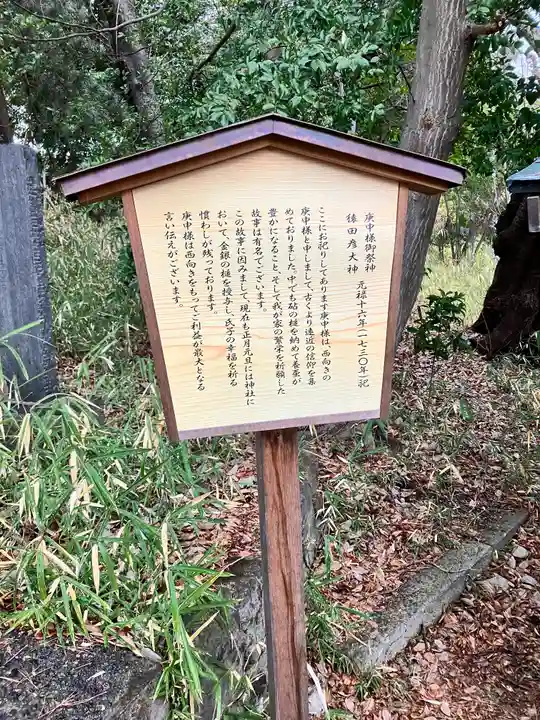 庚申様御祭神
猿田彦大神　元禄十六年（一七三〇年）記
ここにお祀りしてあります庚申様は、西向きの
庚申様と申しまして、古くより遠近の信仰を集
めておりました。中でも砧の槌を納めて養蚕が
豊かになること、そして我が家の繁栄を祈願した
故事は有名でございます。
この故事に因みまして、現在も正月元旦には神社に
おいて、金銀の槌を授与し、氏子の幸福を祈る
慣わしが残っております。
庚申様は西向きをもってご利益が最大となる
言い伝えがございます。